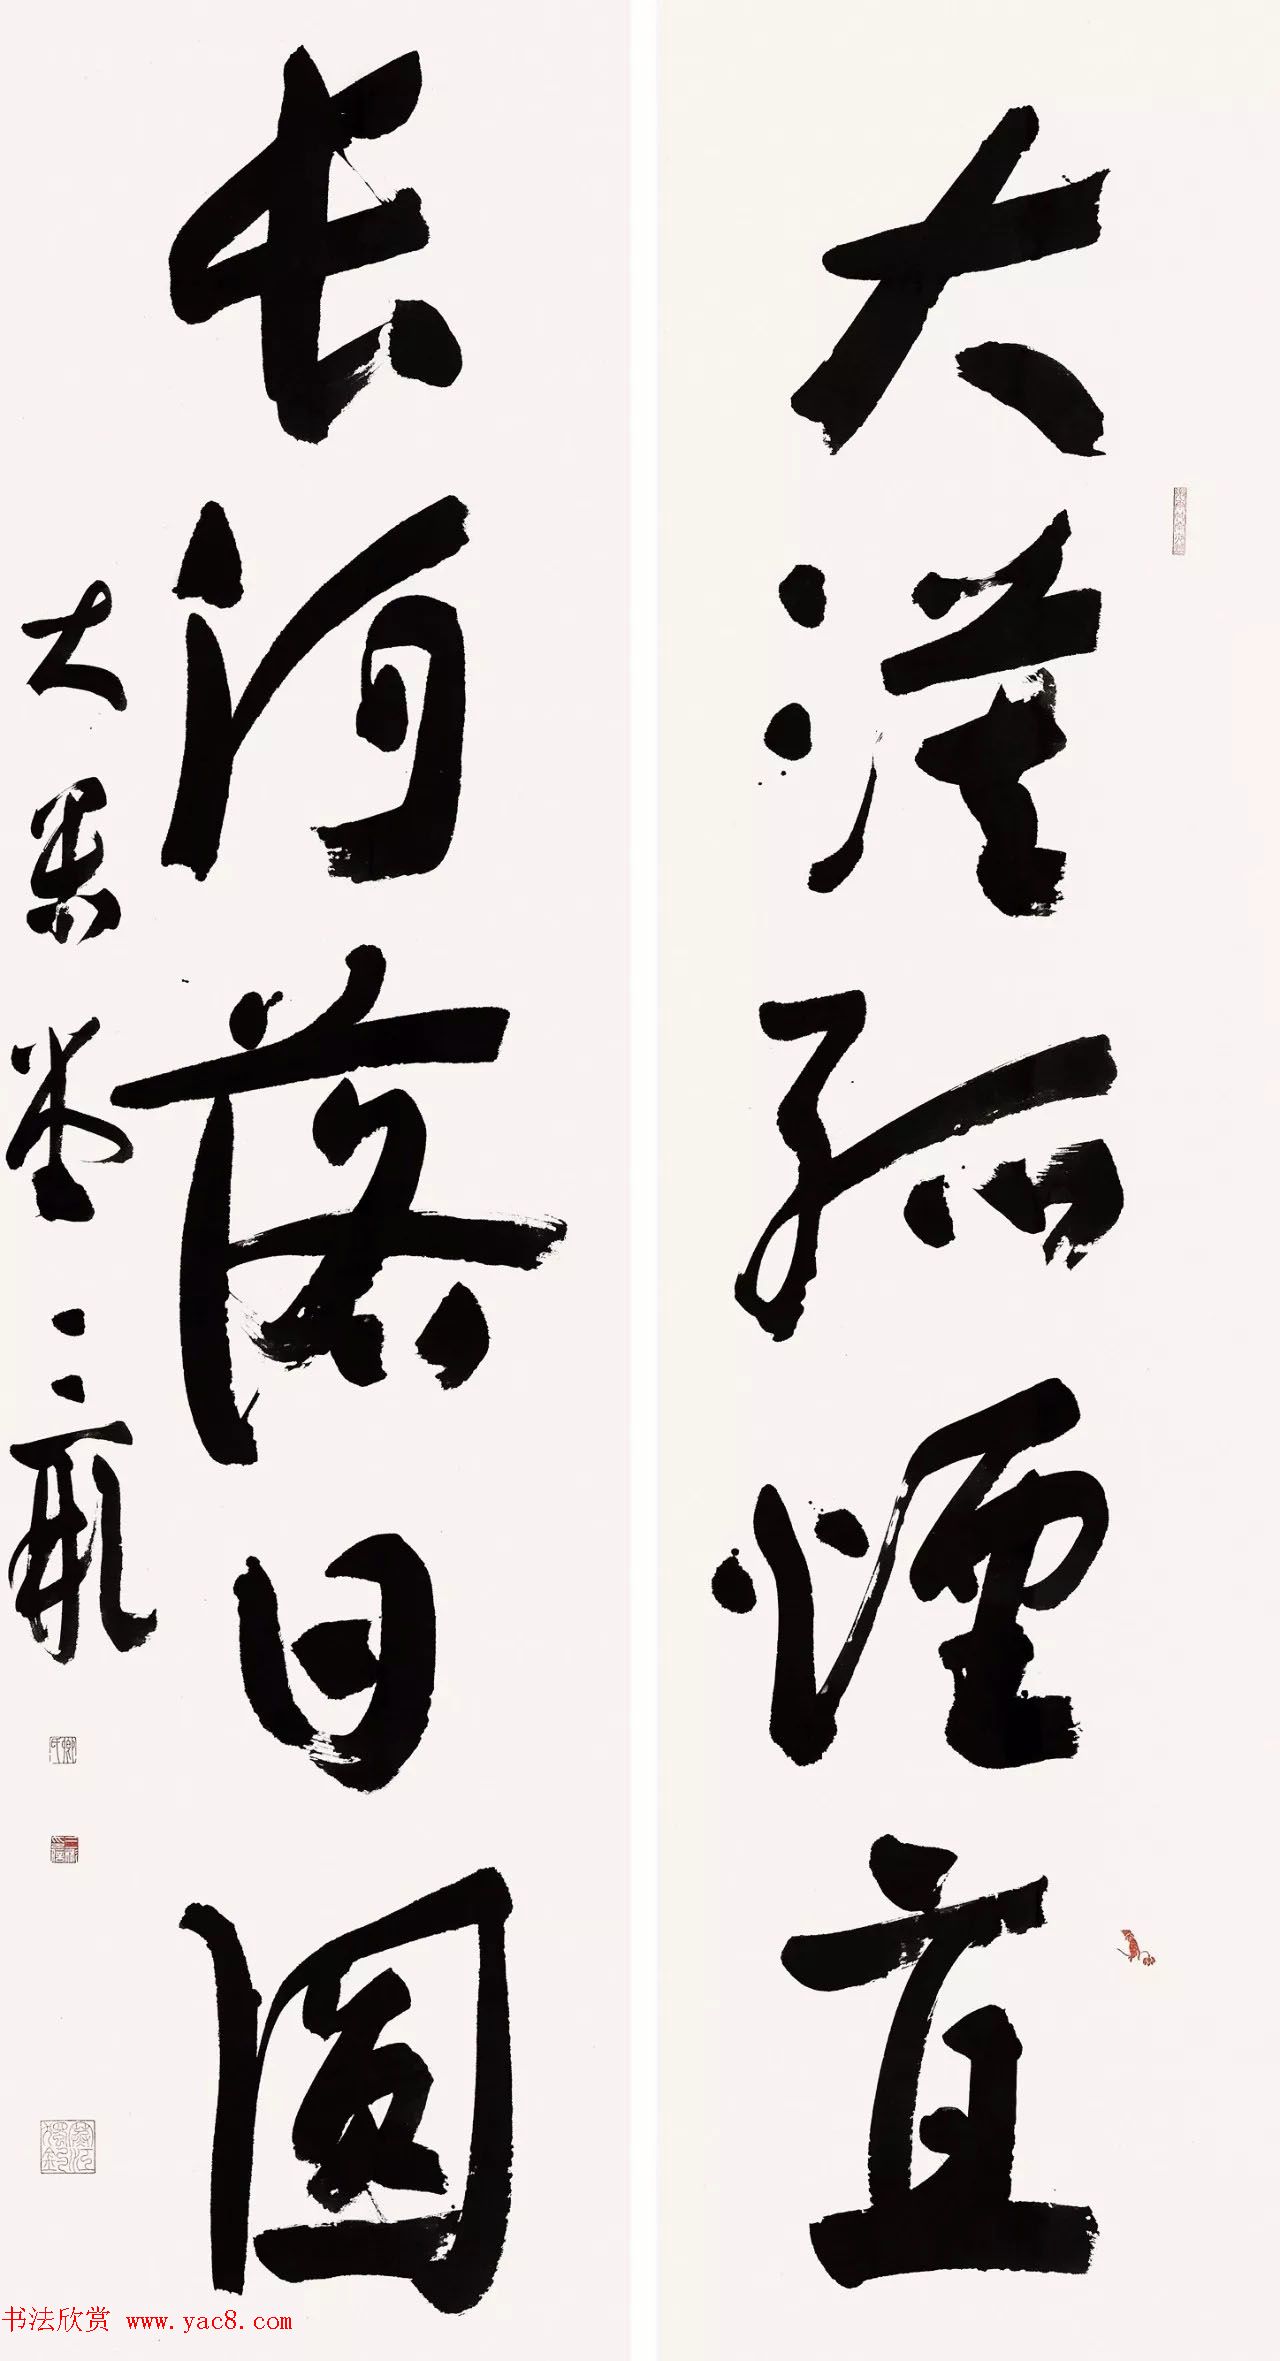 大漠孤煙直
长河落日圆
大墨堂三瓶
书法欣赏 www.yac8.com